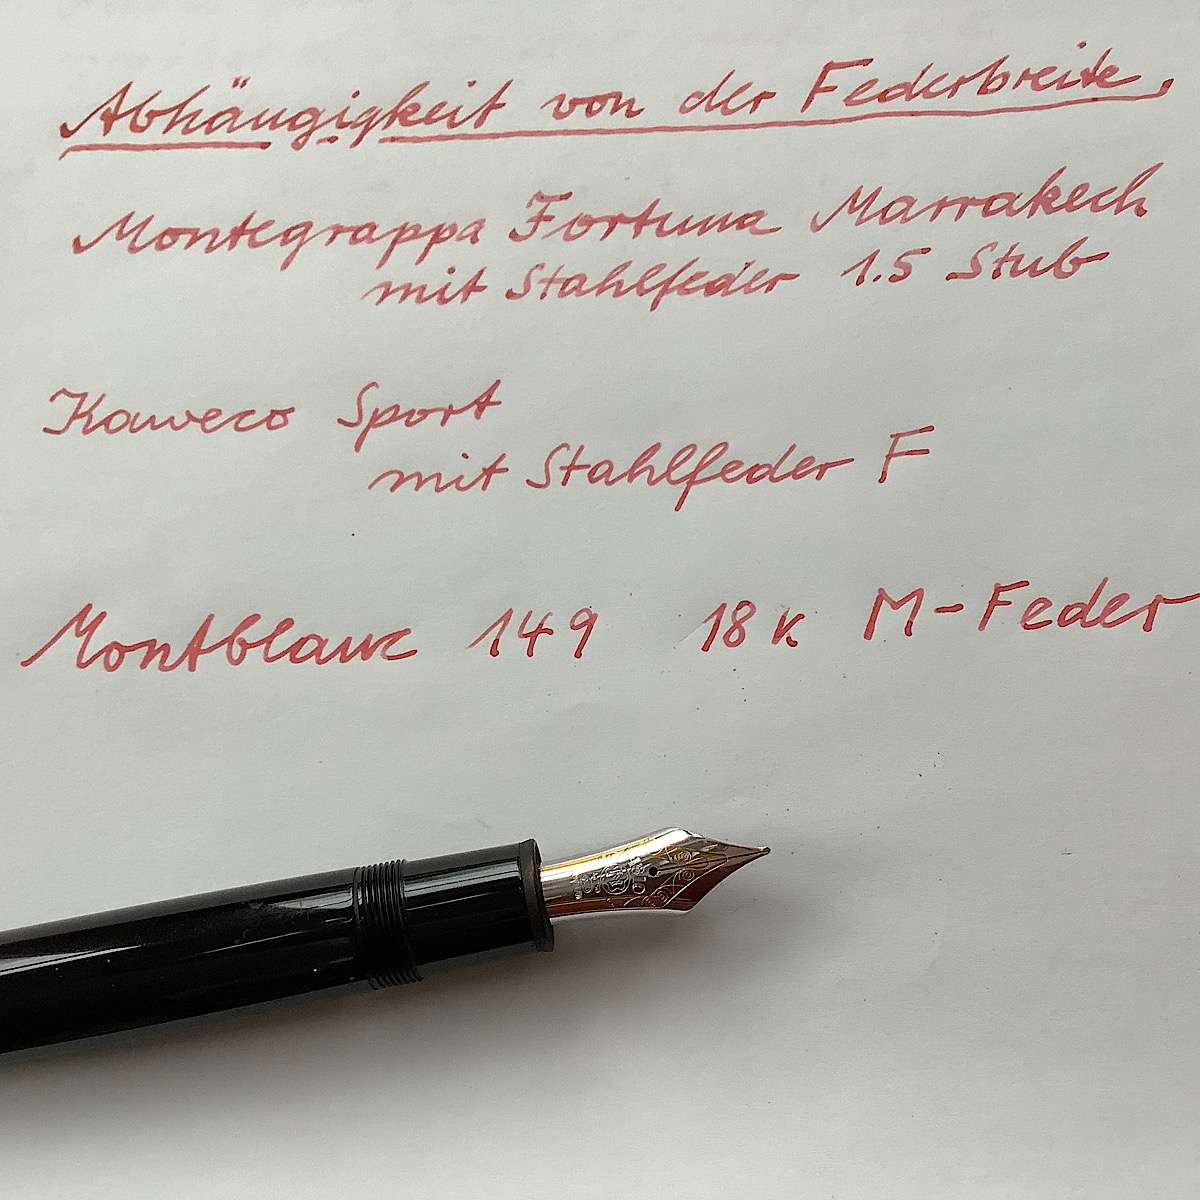 Abhängigkeit von der Federbreite,
Montegrappa Fortuna Marrakech
mit Stahlfeder 1.5 Stub
Kaweco Sport
mit Stahlfeder F
Montblanc 149 18 K M-Feder